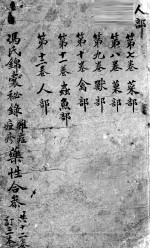 人部
第七卷 菜部
第八卷 菓部
第九卷 獸部
第十卷 禽部
第十一卷 蟲魚部
第十二卷 人部
馮氏錦囊秘錄
雜症
痘疹
藥性合參
共十二卷
訂三本